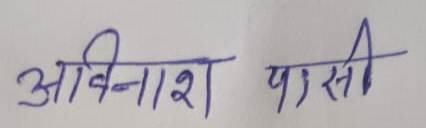 अविनाश पासी